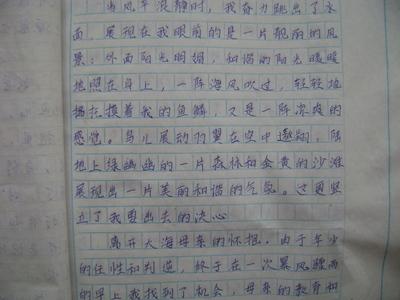 当风平浪静时，我奋力跳出了水
面，展现在我眼前的是一片靓丽的风
景：外面阳光明媚，和谐的阳光暖暖
地照在身上，一阵海风吹过，轻轻地
抚摸着我的鱼鳞，又是一阵凉爽的
感觉。鸟儿展动羽翼在空中遨翔，陆
地上绿幽幽的一片森林和金黄的沙滩
展现出一片美丽和谐的气氛。这更坚
立了我要出去的决心
离开大海母亲的怀抱，由于年少
的任性和判逆，终于在一次暴风骤雨
的早上我找到了机会，母亲的教育和